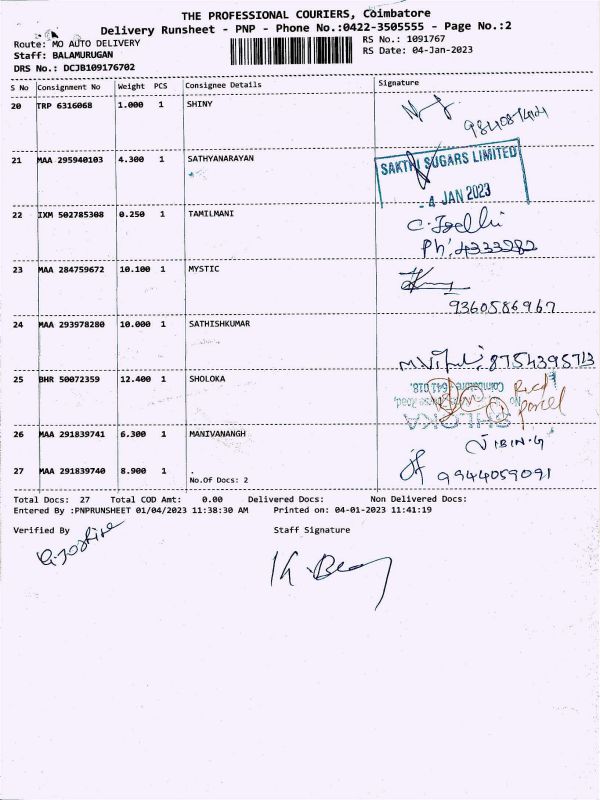 THE PROFESSIONAL COURIERS, Coimbatore
Delivery Runsheet - PNP - Phone No.:0422-3505555 - Page No.:2
Route: MO AUTO DELIVERY RS No.: 1091767
Staff: BALAMURUGAN RS Date: 04-Jan-2023
DRS No.: DCJB109176702
S No Consignment No Weight PCS Consignee Details Signature
20 TRP 6316068 1.000 1 SHINY
21 MAA 295940103 4.300 1 SATHYANARAYAN SAKTHI SUGARS LIMITED
- 4 JAN 2023
22 IXM 502785308 0.250 1 TAMILMANI
Ph: 4333282
23 MAA 284759672 10.100 1 MYSTIC
9360586967
24 MAA 293978280 10.000 1 SATHISHKUMAR
8754395713
25 BHR 50072359 12.400 1 SHOLOKA
Coimbatore 641 018.
Road,
SHLOKA
Parcel
26 MAA 291839741 6.300 1 MANIVANANGH VIBIN.G
27 MAA 291839740 8.900 1 . 9944059091
No.Of Docs: 2
Total Docs: 27 Total COD Amt: 0.00 Delivered Docs: Non Delivered Docs:
Entered By :PNPRUNSHEET 01/04/2023 11:38:30 AM Printed on: 04-01-2023 11:41:19
Verified By Staff Signature